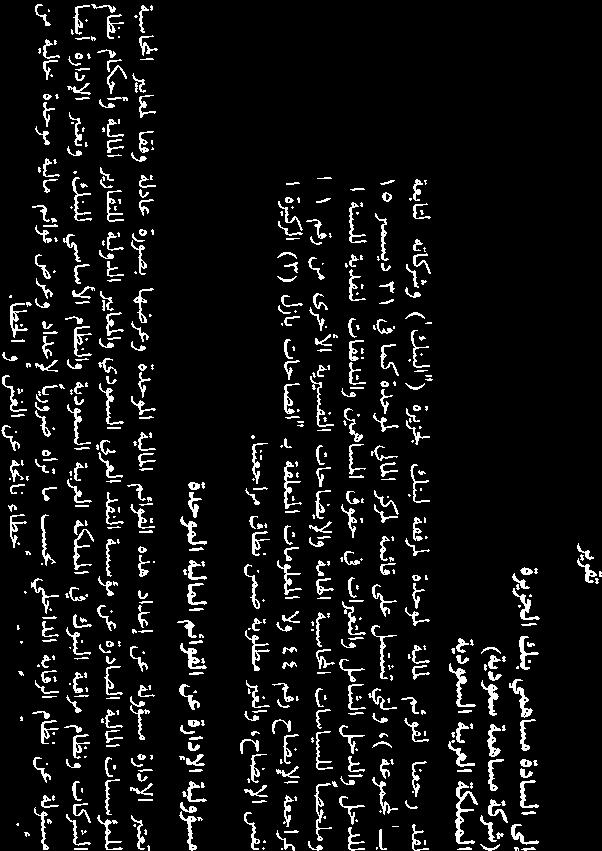 تقرير
إلى السادة مساهمي بنك الجزيرة
(شركة مساهمة سعودية)
المملكة العربية السعودية
لقد رجعنا لقوئم لمالية لموحدة لمرفقة لبنك لجزيرة ("البنك") وشركاته لتابعة
لمجموعة")، ولتي تشتمل على قائمة لمركز المالي لموحدة كما في ٣١ ديسمبر ١٥
للدخل والدخل الشامل والتغيرات في حقوق المساهمين والتدفقات لنقدية للسنة ا
وملخصاً للسياسات المحاسبية الهامة والإيضاحات التفسيرية الأخرى من رقم ١
بمراجعة الإيضاح رقم ٤٤ ولا المعلومات المتعلقة بـ "افصاحات بازل (٣) الركيزة ا
نفس الإيضاح، والغير مطلوبة ضمن نطاق مراجعتنا.
مسؤولية الإدارة عن القوائم المالية الموحدة
تعتبر الإدارة مسؤولة عن إعداد هذه القوائم المالية الموحدة وعرضها بصورة عادلة وفقا لمعايير المحاسبة
للمؤسسات المالية الصادرة عن مؤسسة النقد العربي السعودي والمعايير الدولية للتقارير المالية وأحكام نظام
الشركات ونظام مراقبة البنوك في المملكة العربية السعودية والنظام الأساسي للبنك. وتعتبر الإدارة أيضاً
مسئولة عن نظام الرقابة الداخلي بحسب ما تراه ضرورياً لإعداد وعرض قوائم مالية موحدة خالية من
خطاء ناتجة عن الغش و الخطأ.